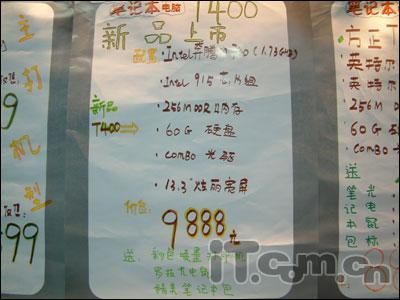 笔记本电脑 T400
新品上市
配置: Intel奔腾M 740 (1.73GHz)
· Intel 915 芯片组
· 256M DDR II内存
新品 T400
· 60G 硬盘
· COMBO 光驱
· 13.3" 炫丽亮屏
价格:
9888元
送: 彩色喷墨打印机
罗技光电鼠
精美笔记本包
主打机型
9
99
笔记本
方正T
英特尔
英特尔
256M
60G
COMBO
送
光电鼠标
笔记本包
iT.com.cn